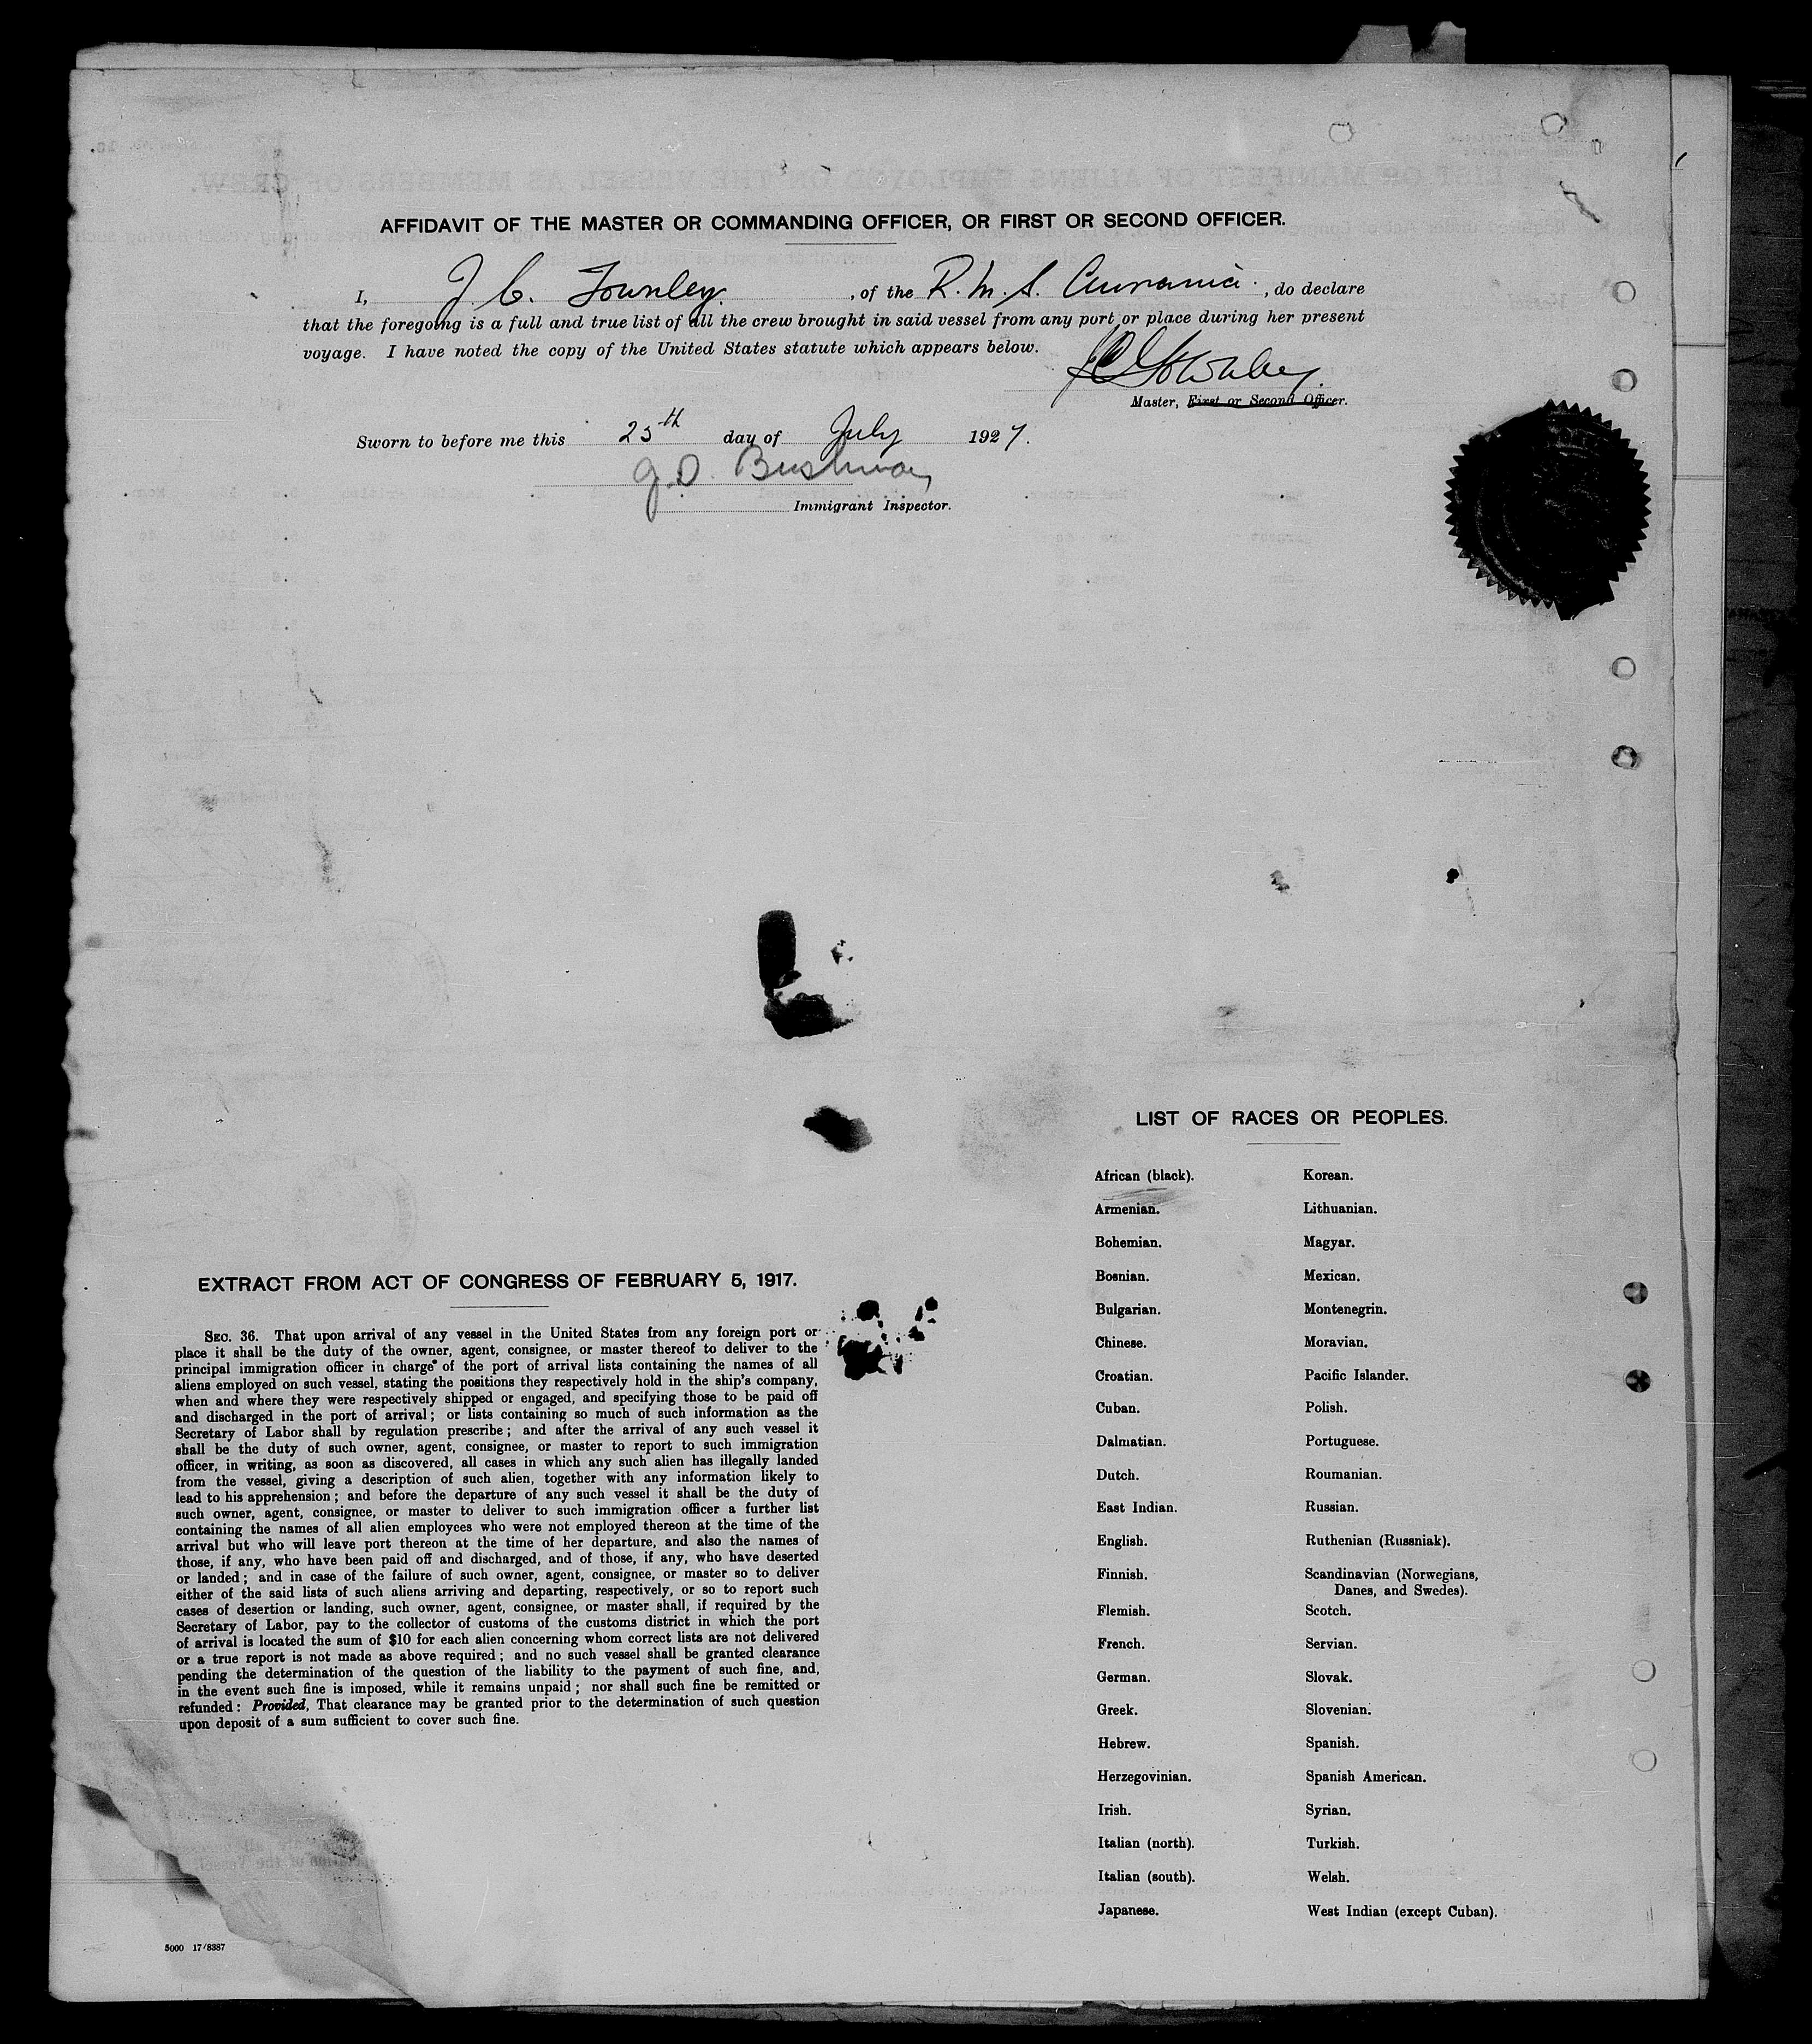 AFFIDAVIT OF THE MASTER OR COMMANDING OFFICER, OR FIRST OR SECOND OFFICER.
I, J. C. Townley, of the R. M. S. Aurania, do declare
that the foregoing is a full and true list of all the crew brought in said vessel from any port or place during her present
voyage. I have noted the copy of the United States statute which appears below.
JC Townley.
Master, First or Second Officer.
Sworn to before me this 25th day of July 1927.
J. D. Bushman
Immigrant Inspector.
LIST OF RACES OR PEOPLES.
African (black). Korean.
Armenian. Lithuanian.
Bohemian. Magyar.
Bosnian. Mexican.
Bulgarian. Montenegrin.
Chinese. Moravian.
Croatian. Pacific Islander.
Cuban. Polish.
Dalmatian. Portuguese.
Dutch. Roumanian.
East Indian. Russian.
English. Ruthenian (Russniak).
Finnish. Scandinavian (Norwegians,
Danes, and Swedes).
Flemish. Scotch.
French. Servian.
German. Slovak.
Greek. Slovenian.
Hebrew. Spanish.
Herzegovinian. Spanish American.
Irish. Syrian.
Italian (north). Turkish.
Italian (south). Welsh.
Japanese. West Indian (except Cuban).
EXTRACT FROM ACT OF CONGRESS OF FEBRUARY 5, 1917.
SEC. 36. That upon arrival of any vessel in the United States from any foreign port or
place it shall be the duty of the owner, agent, consignee, or master thereof to deliver to the
principal immigration officer in charge of the port of arrival lists containing the names of all
aliens employed on such vessel, stating the positions they respectively hold in the ship's company,
when and where they were respectively shipped or engaged, and specifying those to be paid off
and discharged in the port of arrival; or lists containing so much of such information as the
Secretary of Labor shall by regulation prescribe; and after the arrival of any such vessel it
shall be the duty of such owner, agent, consignee, or master to report to such immigration
officer, in writing, as soon as discovered, all cases in which any such alien has illegally landed
from the vessel, giving a description of such alien, together with any information likely to
lead to his apprehension; and before the departure of any such vessel it shall be the duty of
such owner, agent, consignee, or master to deliver to such immigration officer a further list
containing the names of all alien employees who were not employed thereon at the time of the
arrival but who will leave port thereon at the time of her departure, and also the names of
those, if any, who have been paid off and discharged, and of those, if any, who have deserted
or landed; and in case of the failure of such owner, agent, consignee, or master so to deliver
either of the said lists of such aliens arriving and departing, respectively, or so to report such
cases of desertion or landing, such owner, agent, consignee, or master shall, if required by the
Secretary of Labor, pay to the collector of customs of the customs district in which the port
of arrival is located the sum of $10 for each alien concerning whom correct lists are not delivered
or a true report is not made as above required; and no such vessel shall be granted clearance
pending the determination of the question of the liability to the payment of such fine, and,
in the event such fine is imposed, while it remains unpaid; nor shall such fine be remitted or
refunded: Provided, That clearance may be granted prior to the determination of such question
upon deposit of a sum sufficient to cover such fine.
5000 17/8387